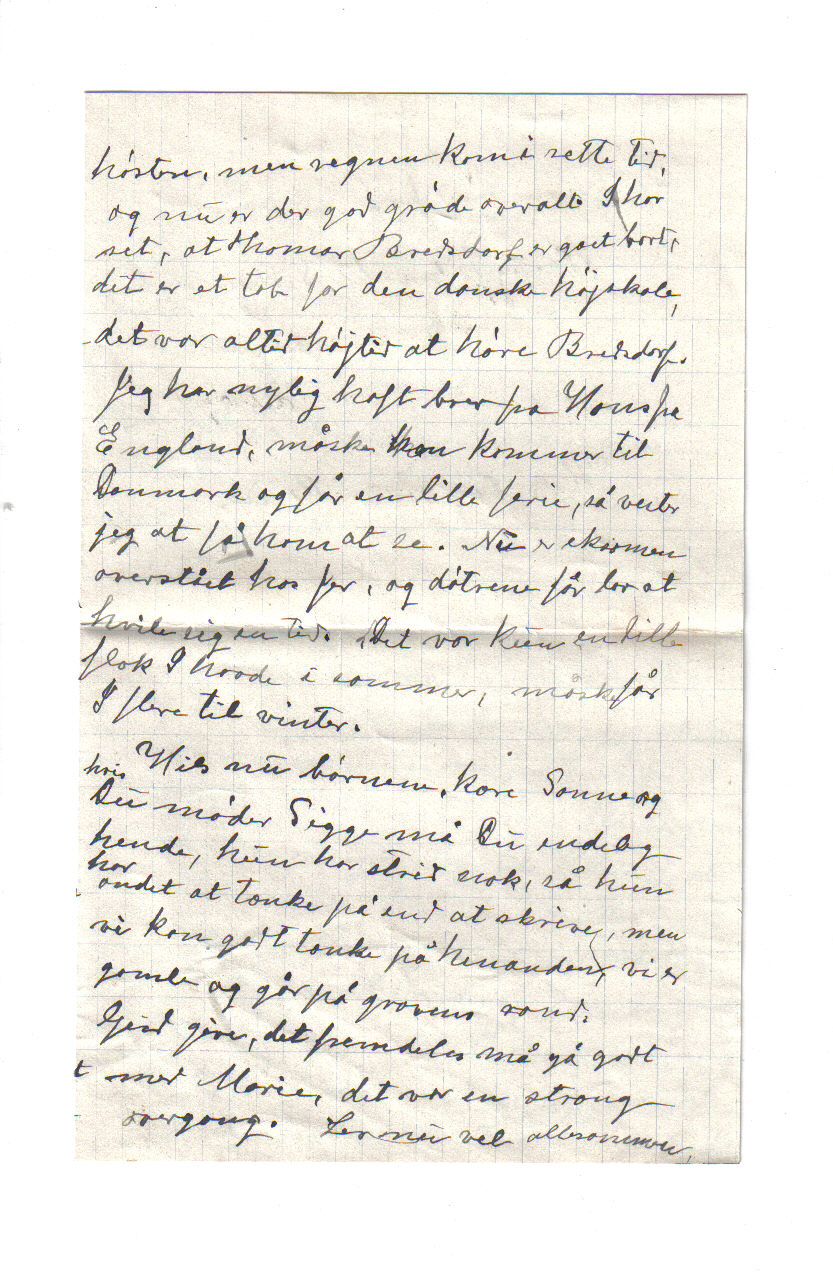 høsten, men regnen kom i rette tid,
og nu er der god grøde overalt. I har
set, at Thomas Bredsdorf er gået bort,
det er et tab for den danske højskole,
det var altid højtid at høre Bredsdorf.
Jeg har nylig haft brev fra Hans fra
England, måske han kommer til
Danmark og får en lille ferie, så venter
jeg at få ham at se. Nu er eksamen
overstået hos Jer, og døtrene får lov at
hvile sig en tid. Det var kun en lille
flok I havde i sommer, måske får
I flere til vinter.
Hils nu børnene, kære Sanne og
hvis
Du møder Sigge må Du endelig
hende, hun har strid nok, så hun
har
andet at tænke på end at skrive, men
vi kan godt tænke på hinanden, vi er
gamle og går på gravens rand.
Gud give, det fremdeles må gå godt
t med Marie, det var en strang
overgang. Lev nu vel allesammen,